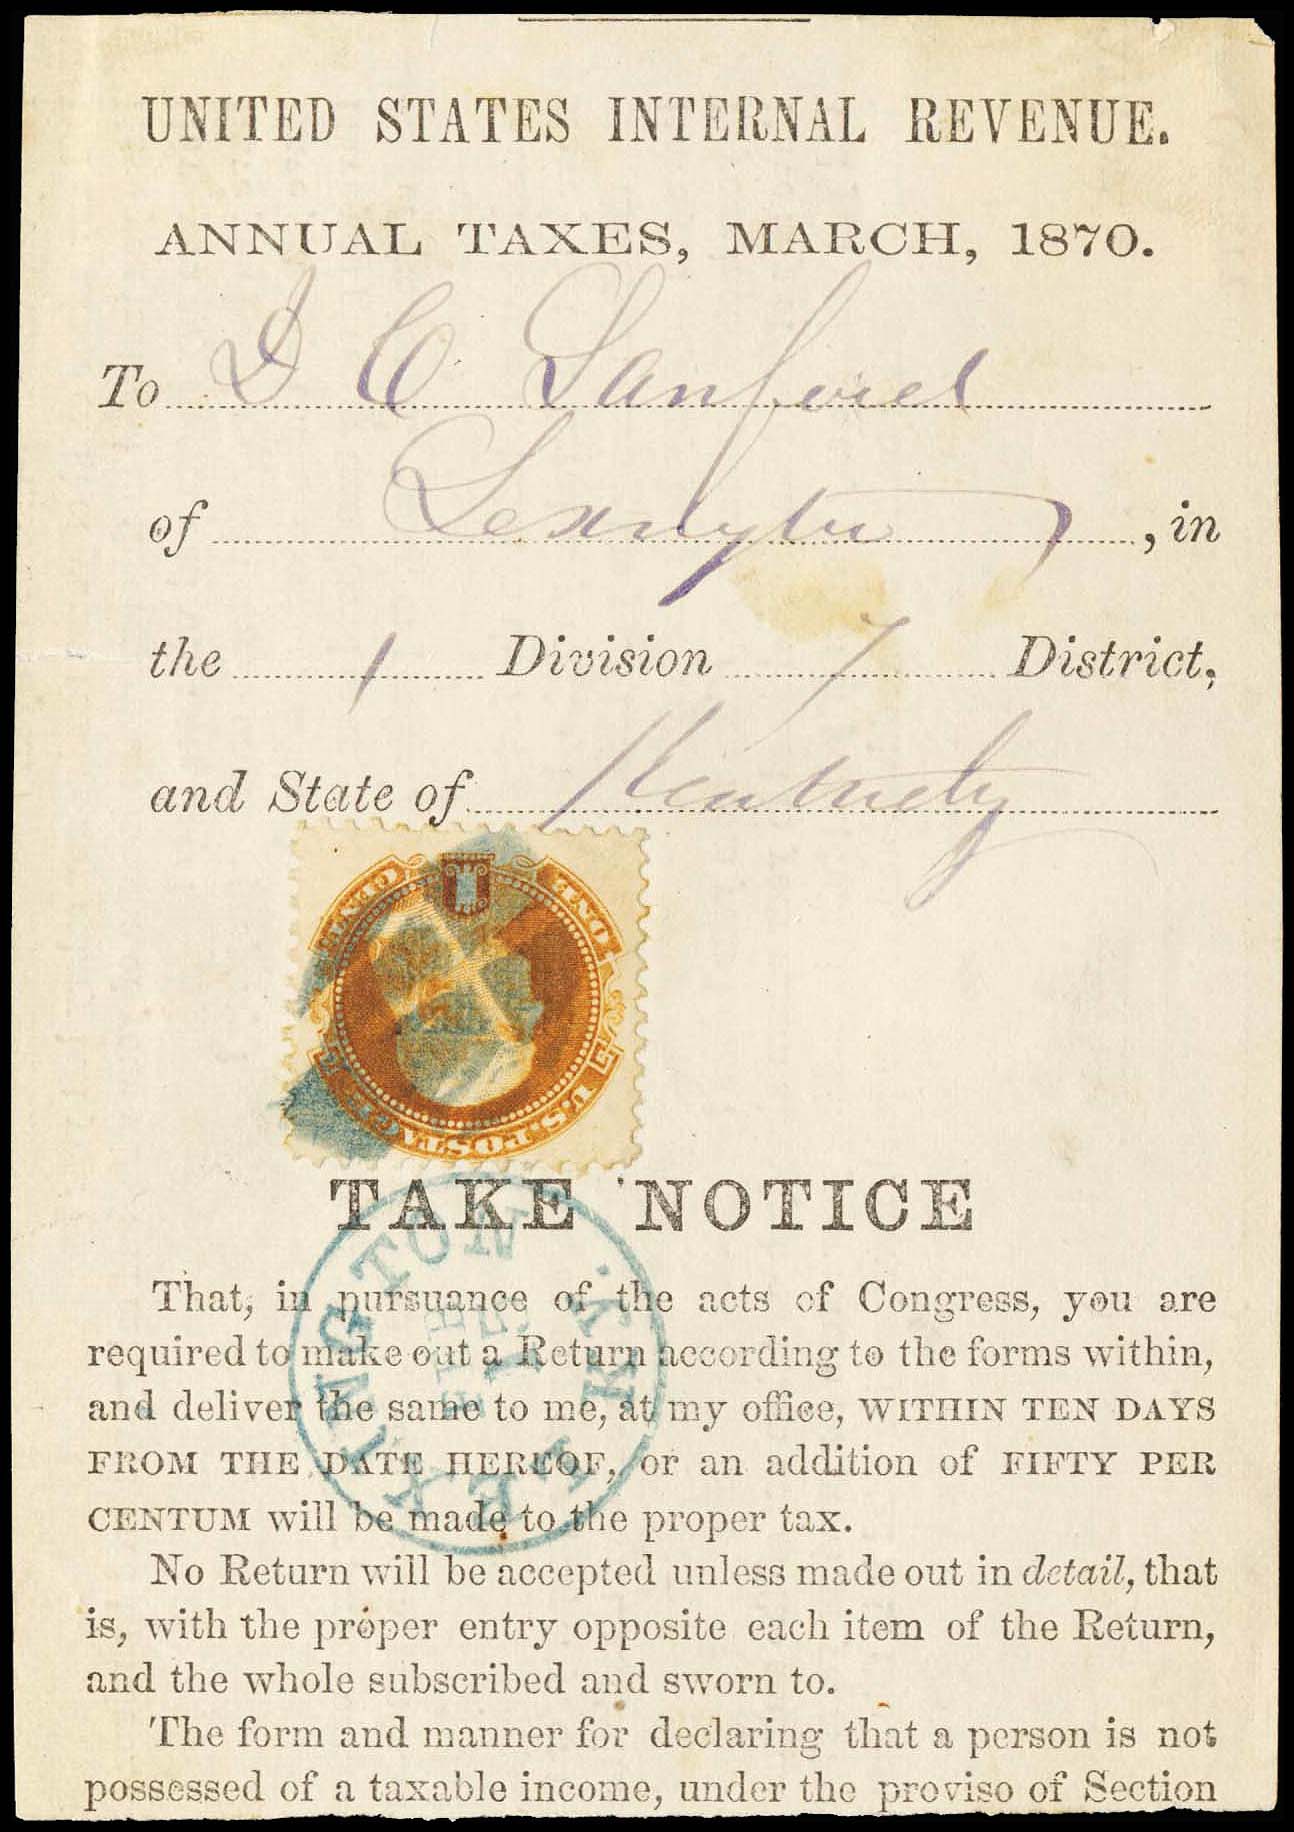 UNITED STATES INTERNAL REVENUE.
ANNUAL TAXES, MARCH, 1870.
To D C Sanford
of Lexington, in
the 1 Division 7 District,
and State of Kentucky
ONE CENT
U.S. POSTAGE
TAKE NOTICE
LEXINGTON KY.
FEB
1
That, in pursuance of the acts of Congress, you are
required to make out a Return according to the forms within,
and deliver the same to me, at my office, WITHIN TEN DAYS
FROM THE DATE HEREOF, or an addition of FIFTY PER
CENTUM will be made to the proper tax.
No Return will be accepted unless made out in detail, that
is, with the proper entry opposite each item of the Return,
and the whole subscribed and sworn to.
The form and manner for declaring that a person is not
possessed of a taxable income, under the proviso of Section